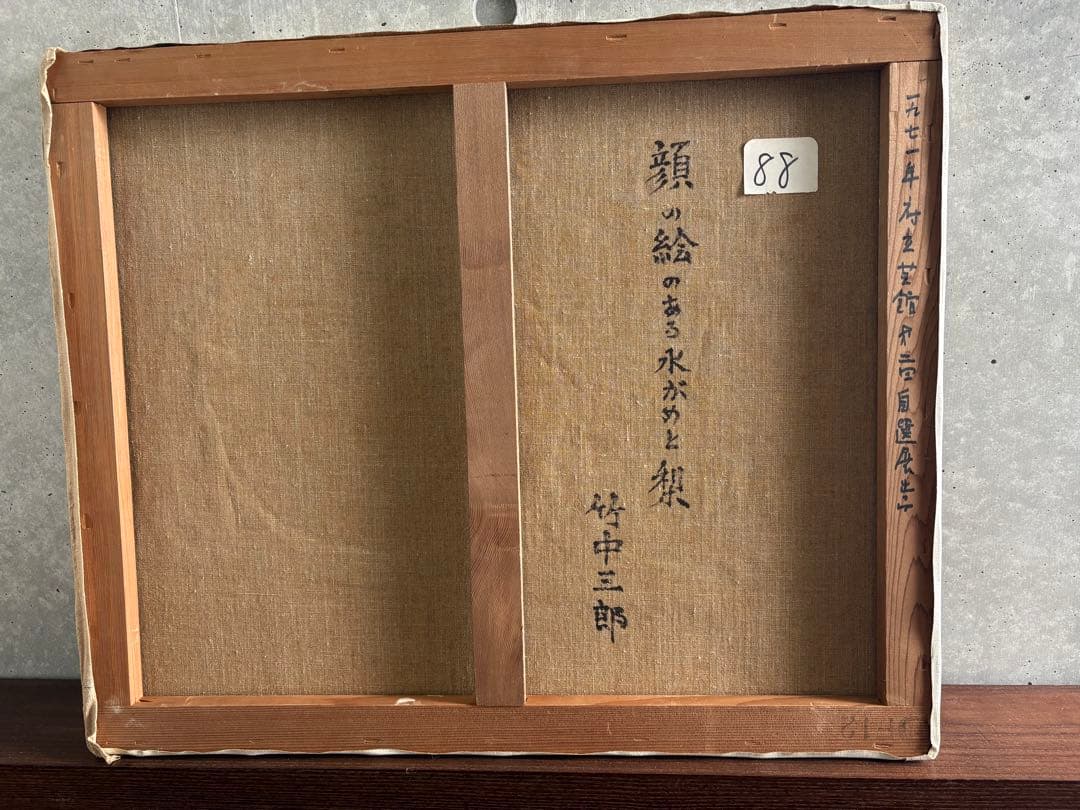 一九七一年府立芸館才二回自選展
88
顔の絵のある水がめと梨
竹中三郎